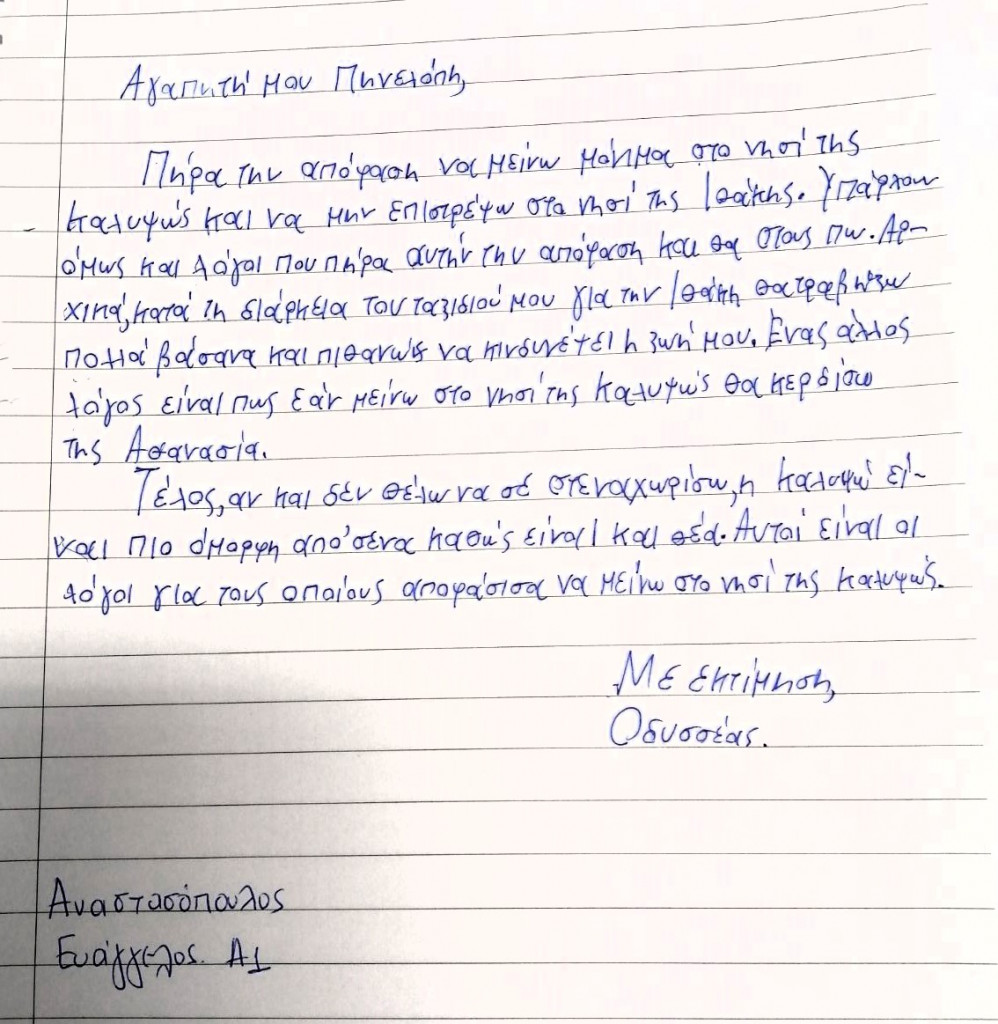 Αγαπητή μου Πηνελόπη,
Πήρα την απόφαση να μείνω μόνιμα στο νησί της
Καλυψώς και να μην επιστρέψω στο νησί της Ιθάκης. Υπάρχουν
όμως και λόγοι που πήρα αυτήν την απόφαση και θα στους πω. Αρ-
χικά, κατά τη διάρκεια του ταξιδιού μου για την Ιθάκη θα τραβήξω
πολλά βάσανα και πιθανώς να κινδυνέψει η ζωή μου. Ένας άλλος
λόγος είναι πως εάν μείνω στο νησί της Καλυψώς θα κερδίσω
της Αθανασία.
Τέλος, αν και δέν θέλω να σέ στεναχωρίσω, η Καλυψώ εί-
ναι πιο όμορφη από'σένα καθώς είναι και θέά. Αυτοί είναι οι
λόγοι για τους οποίους αποφάσισα να μείνω στο νησί της Καλυψώς.
Με εκτίμηση,
Οδυσσέας.
Αναστασόπουλος
Ευάγγελος A1